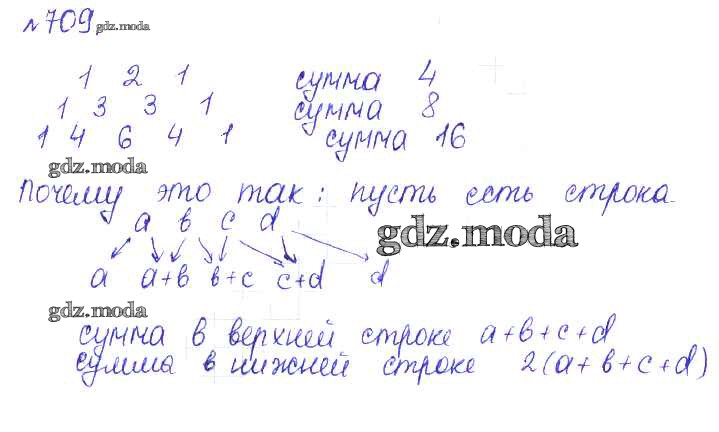 №709 gdz.moda
1 2 1 сумма 4
1 3 3 1 сумма 8
1 4 6 4 1 сумма 16
gdz.moda
Почему это так: пусть есть строка
a b c d
gdz.moda
a a+b b+c c+d d
gdz.moda
сумма в верхней строке a+b+c+d
сумма в нижней строке 2(a+b+c+d)